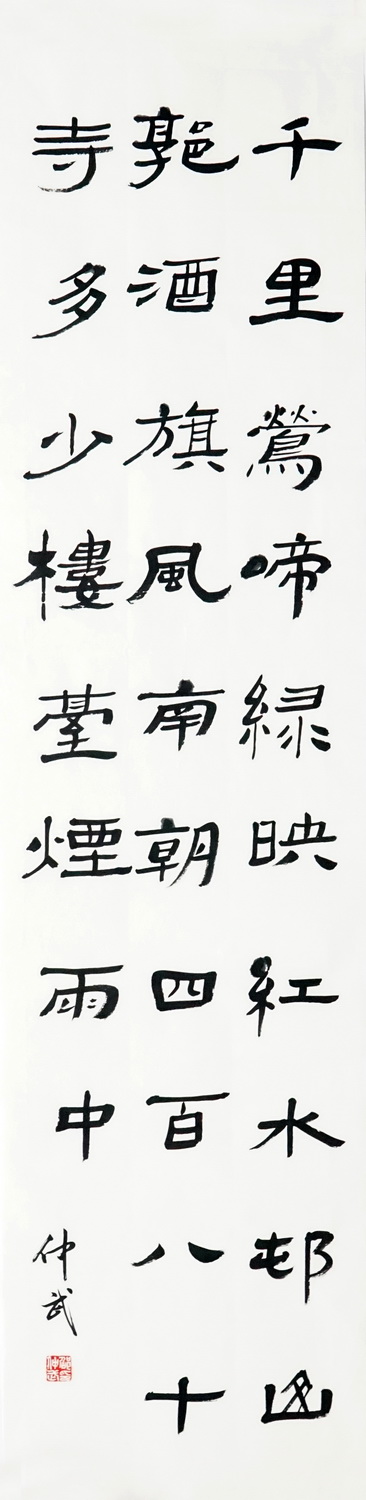 千里鶯啼緑映紅水邨山
郭酒旗風南朝四百八十
寺多少樓臺煙雨中
仲武